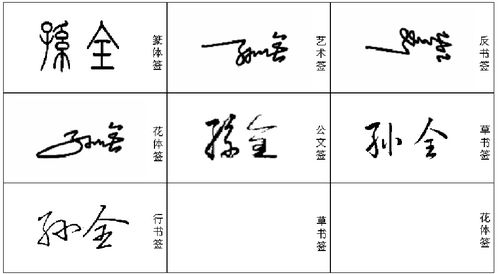 孫全
篆体签
孙全
艺术签
反书签
孙全
花体签
孫全
公文签
孙全
草书签
孙全
行书签
草书签
花体签